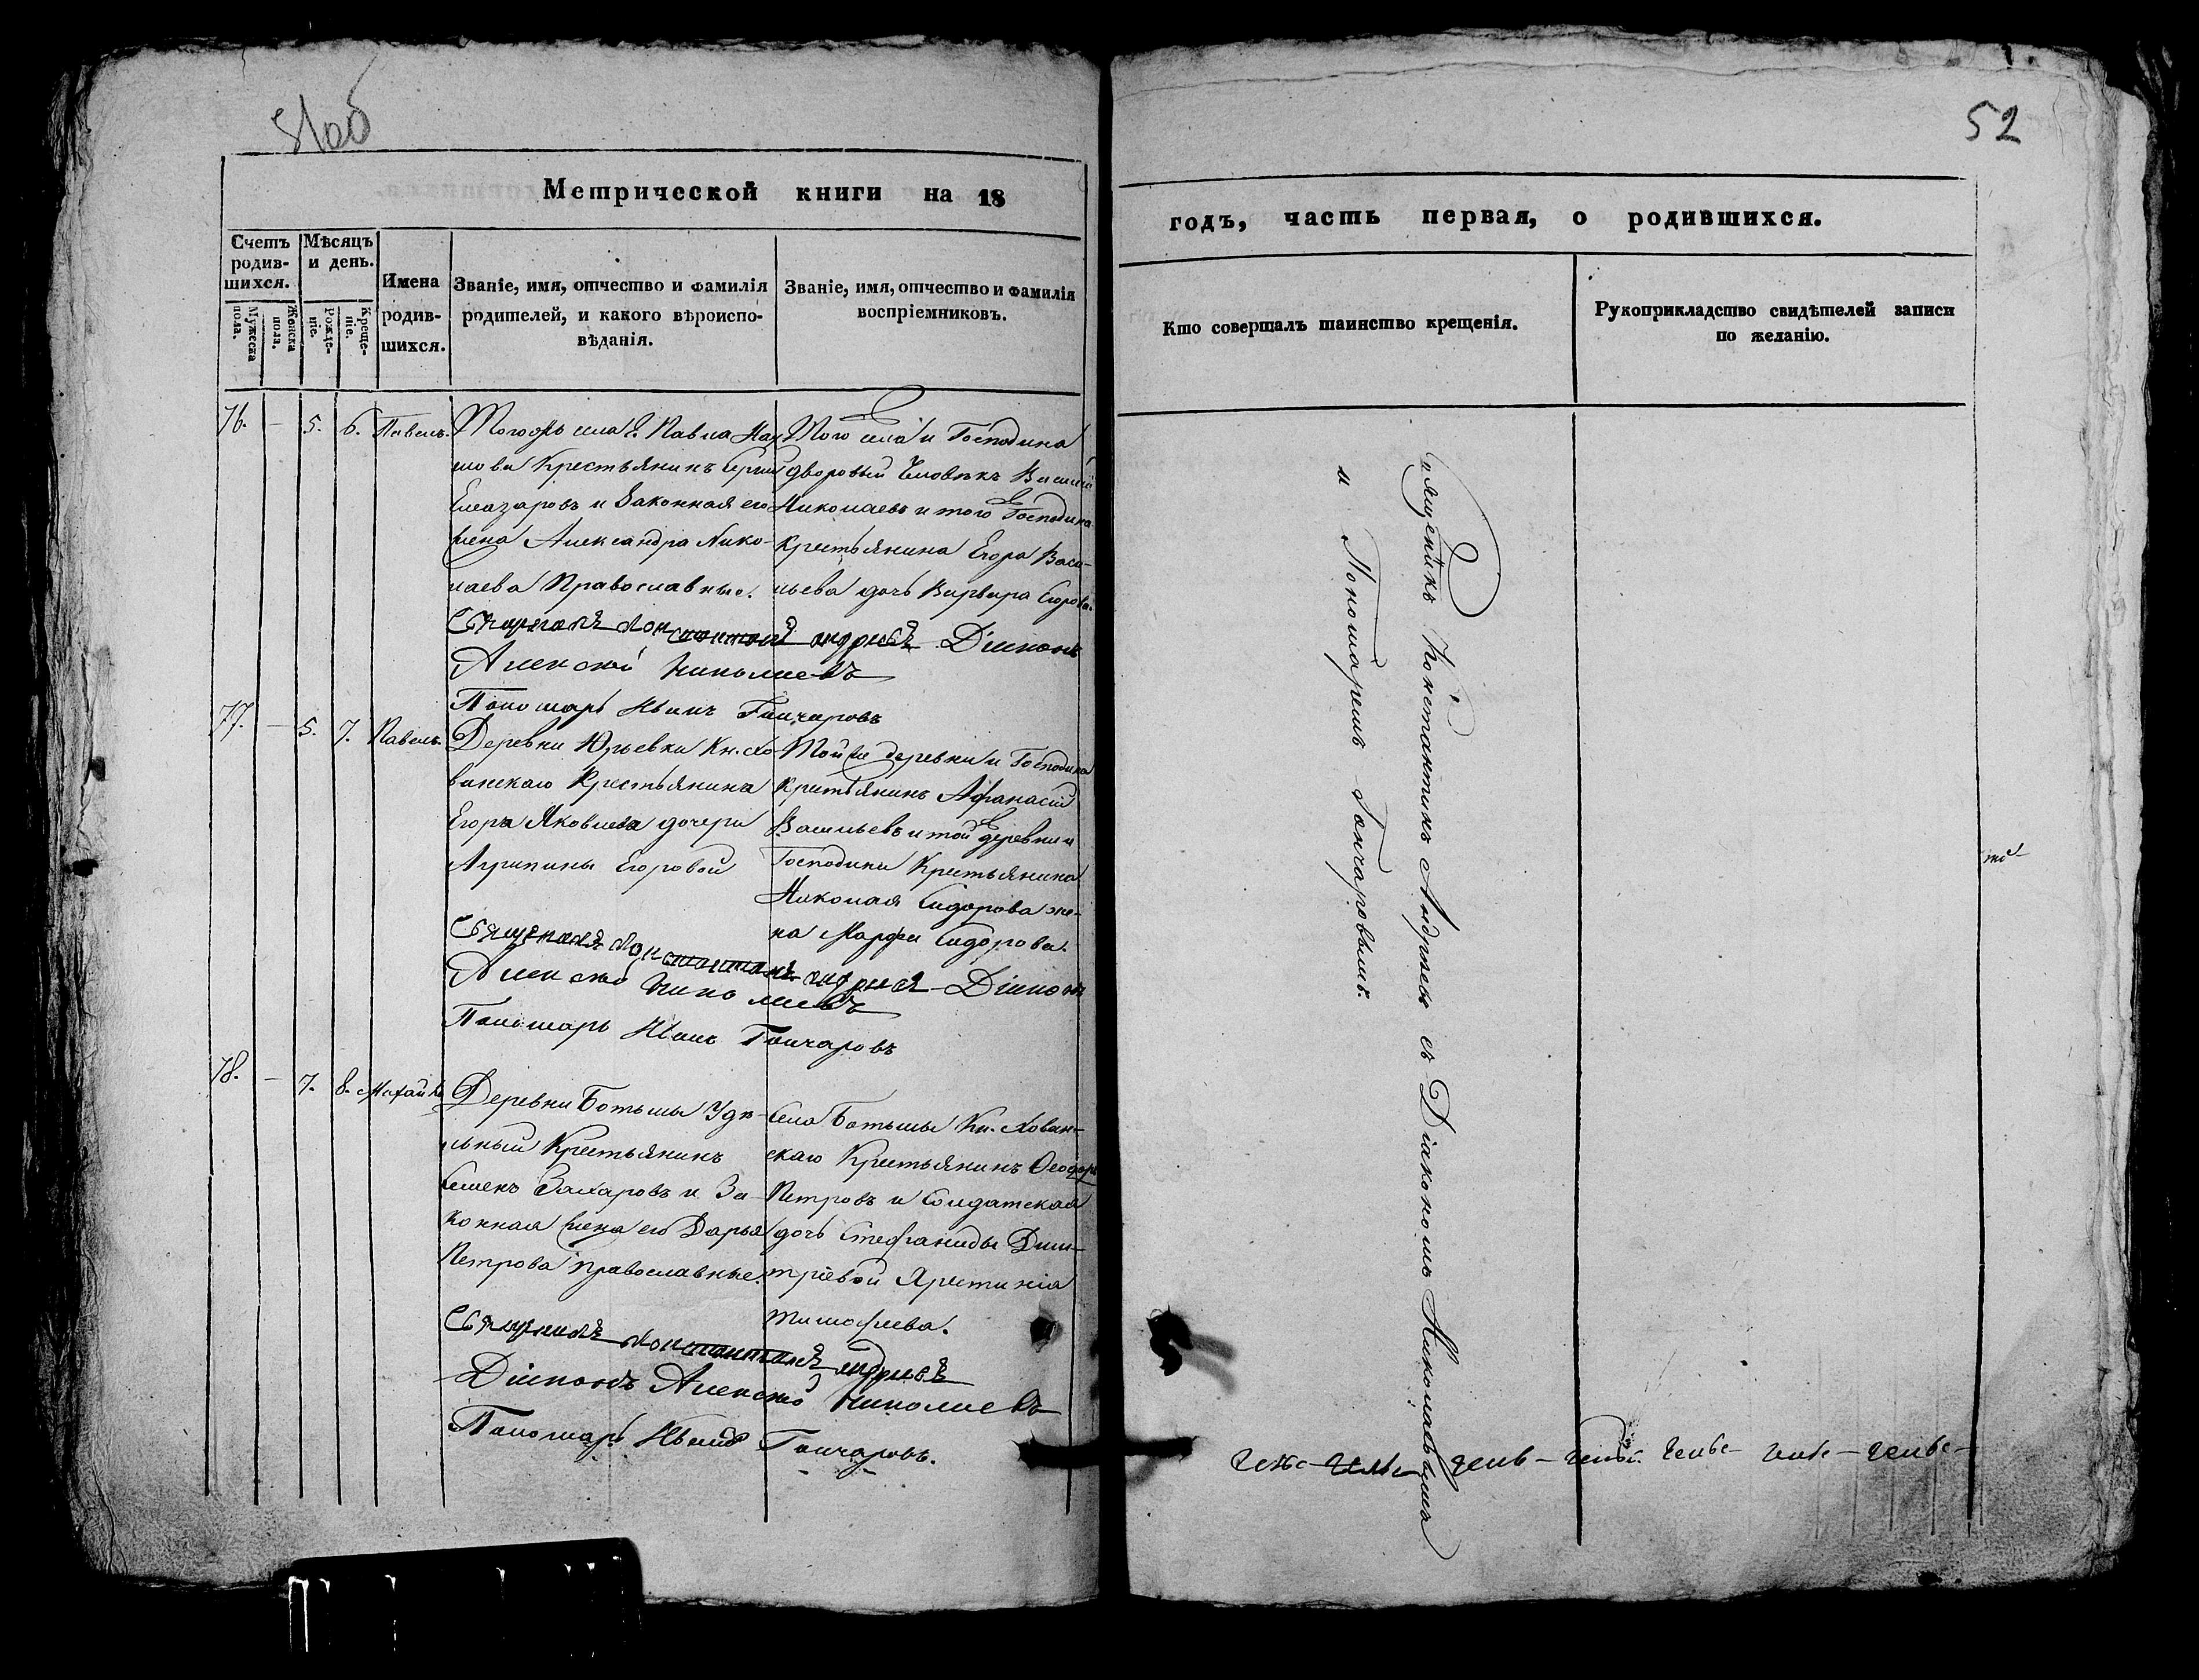 51об
52
Метрической книги на 18
годъ, часть первая, о родившихся.
Счетъ родив-
шихся.
Мужеска пола.
Женска пола.
Мѣсяцъ
и день.
Рожде-
ніе.
Креще-
ніе.
Имена
родив-
шихся.
Званіе, имя, отчество и фамилія
родителей, и какого вѣроиспо-
вѣданія.
Званіе, имя, отчество и фамилія
воспріемниковъ.
Кто совершалъ таинство крещенія.
Рукоприкладство свидѣтелей записи
по желанію.
76. – 5. 6. Павелъ.
села Г. Павла На
мова Крестьянинъ Сергій
Елеазаровъ и Законная его
жена Александра Нико-
лаева Православные.
Того села и Господина
дворовый Человѣкъ Василій
Николаевъ и того Господина
Крестьянина Егора Васи-
льева дочь Варвара Егорова.
Священникъ Константинъ Андреевъ Діаконъ
Алексѣй Николаевъ
Пономарь Иванъ Гончаровъ
77. – 5. 7. Павелъ.
Деревни Юрьевки Кн. Хо-
ванскаго Крестьянина
Егора Яковлева дочери
Агрипины Егоровой
Той же деревни и Господина
Крестьянинъ Афанасій
Васильевъ и той деревни и
Господина Крестьянина
Николая Сидорова же-
на Марфа Сидорова.
Священникъ Константинъ Андреевъ Діаконъ
Алексѣй Николаевъ
Пономарь Иванъ Гончаровъ
78. – 7. 8. Михаилъ
Деревни Ботьмы Удѣ-
льный Крестьянинъ
Семенъ Захаровъ и За-
конная жена его Дарья
Петрова православные.
Села Ботьмы Кн. Хован-
скаго Крестьянинъ Ѳеодоръ
Петровъ и Солдатская
дочь Стефаниды Дми-
тріевой
Тимофеева.
Священникъ Константинъ Андреевъ
Діаконъ Алексѣй Николаевъ
Пономарь Иванъ Гончаровъ.
Священникъ Константинъ Андреевъ съ Діакономъ Николаевымъ
и Пономаремъ Гончаровымъ.